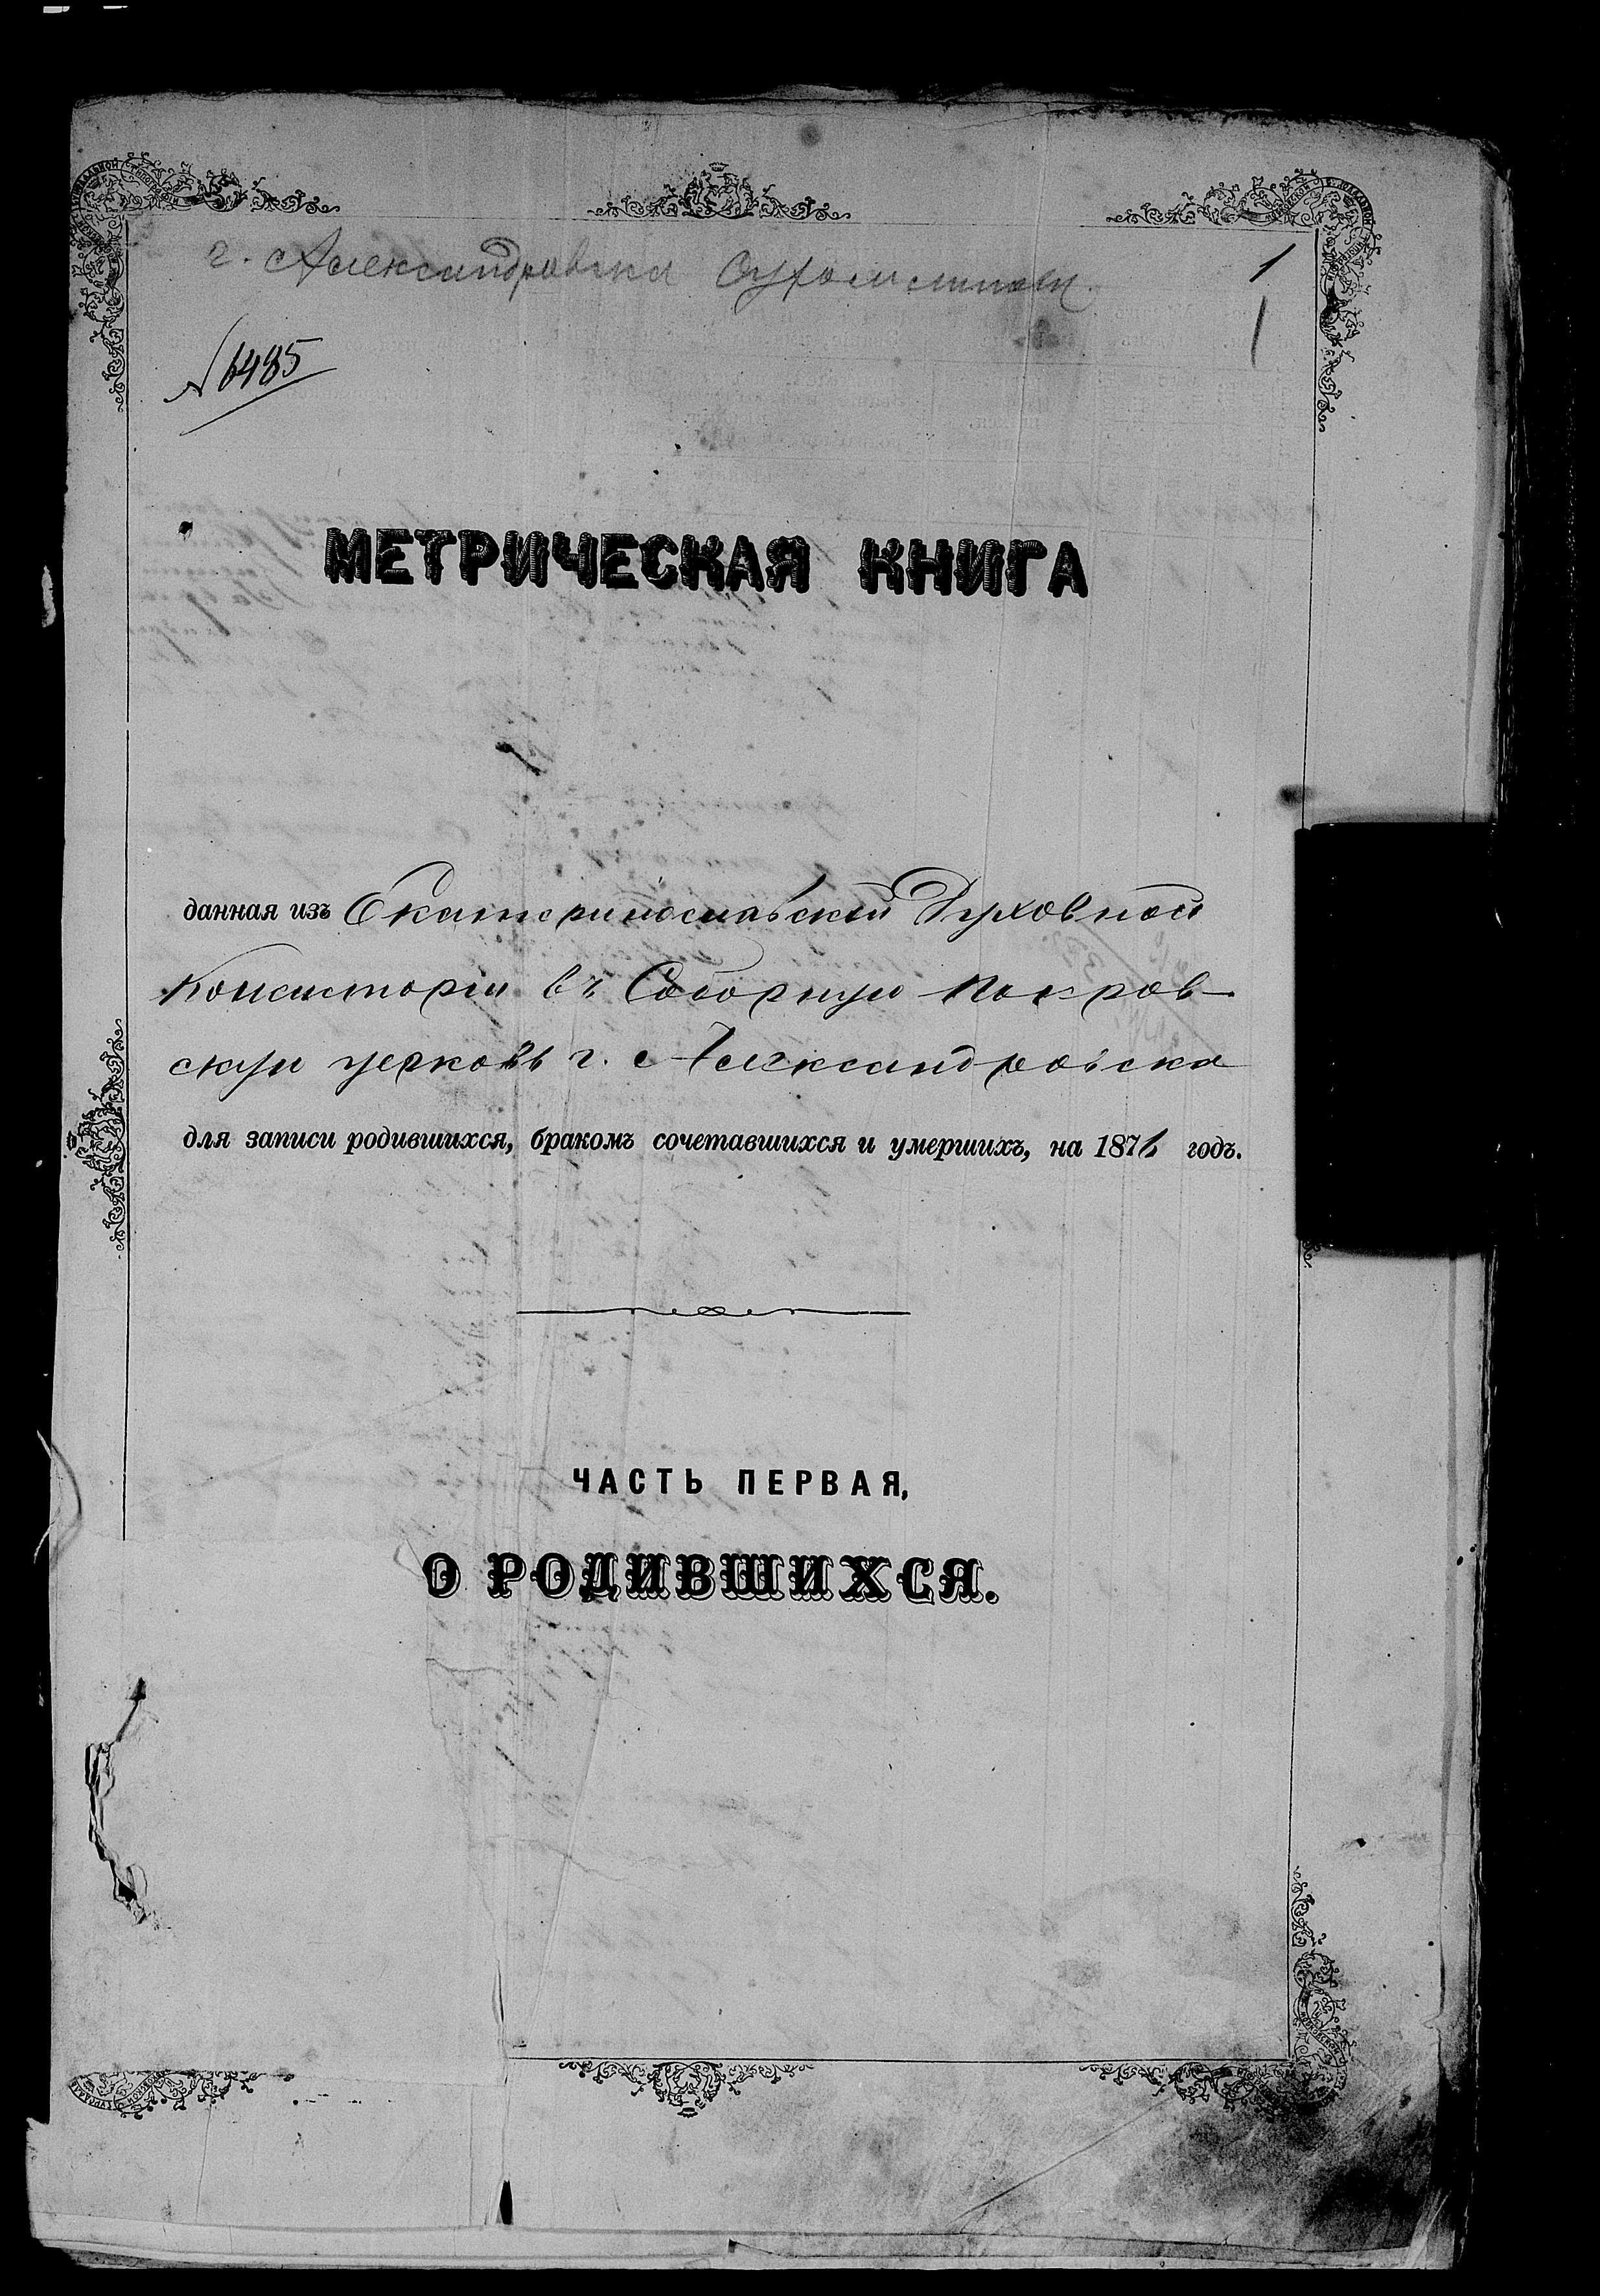 г. Александровска
1
1
№ 6485
МЕТРИЧЕСКАЯ КНИГА
данная изъ Екатеринославской Духовной
Консисторіи въ Соборную Покров-
скую церковь г. Александровска
для записи родившихся, бракомъ сочетавшихся и умершихъ, на 1876 годъ.
ЧАСТЬ ПЕРВАЯ,
О РОДИВШИХСЯ.